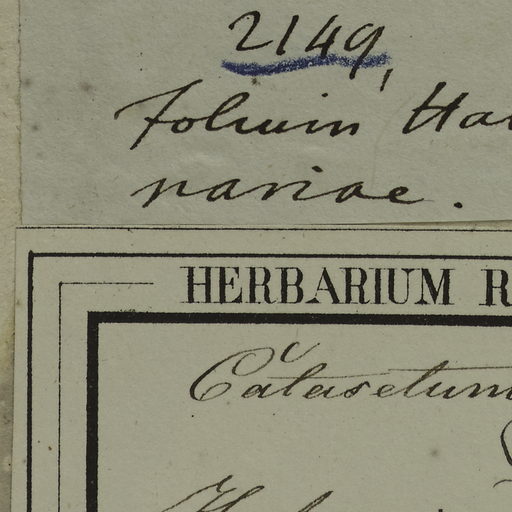 2149,
folium Ha
nariae.
HERBARIUM R
Catasetum